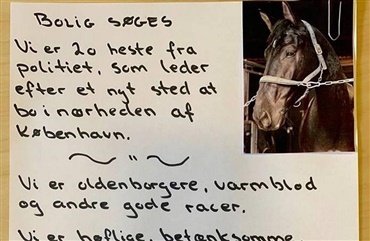 BOLIG SØGES
Vi er 20 heste fra
politiet, som leder
efter et nyt sted at
bo i nærheden af
København.
Vi er oldenborgere, varmblod
og andre gode racer.
Vi er høflige, betænksomme,